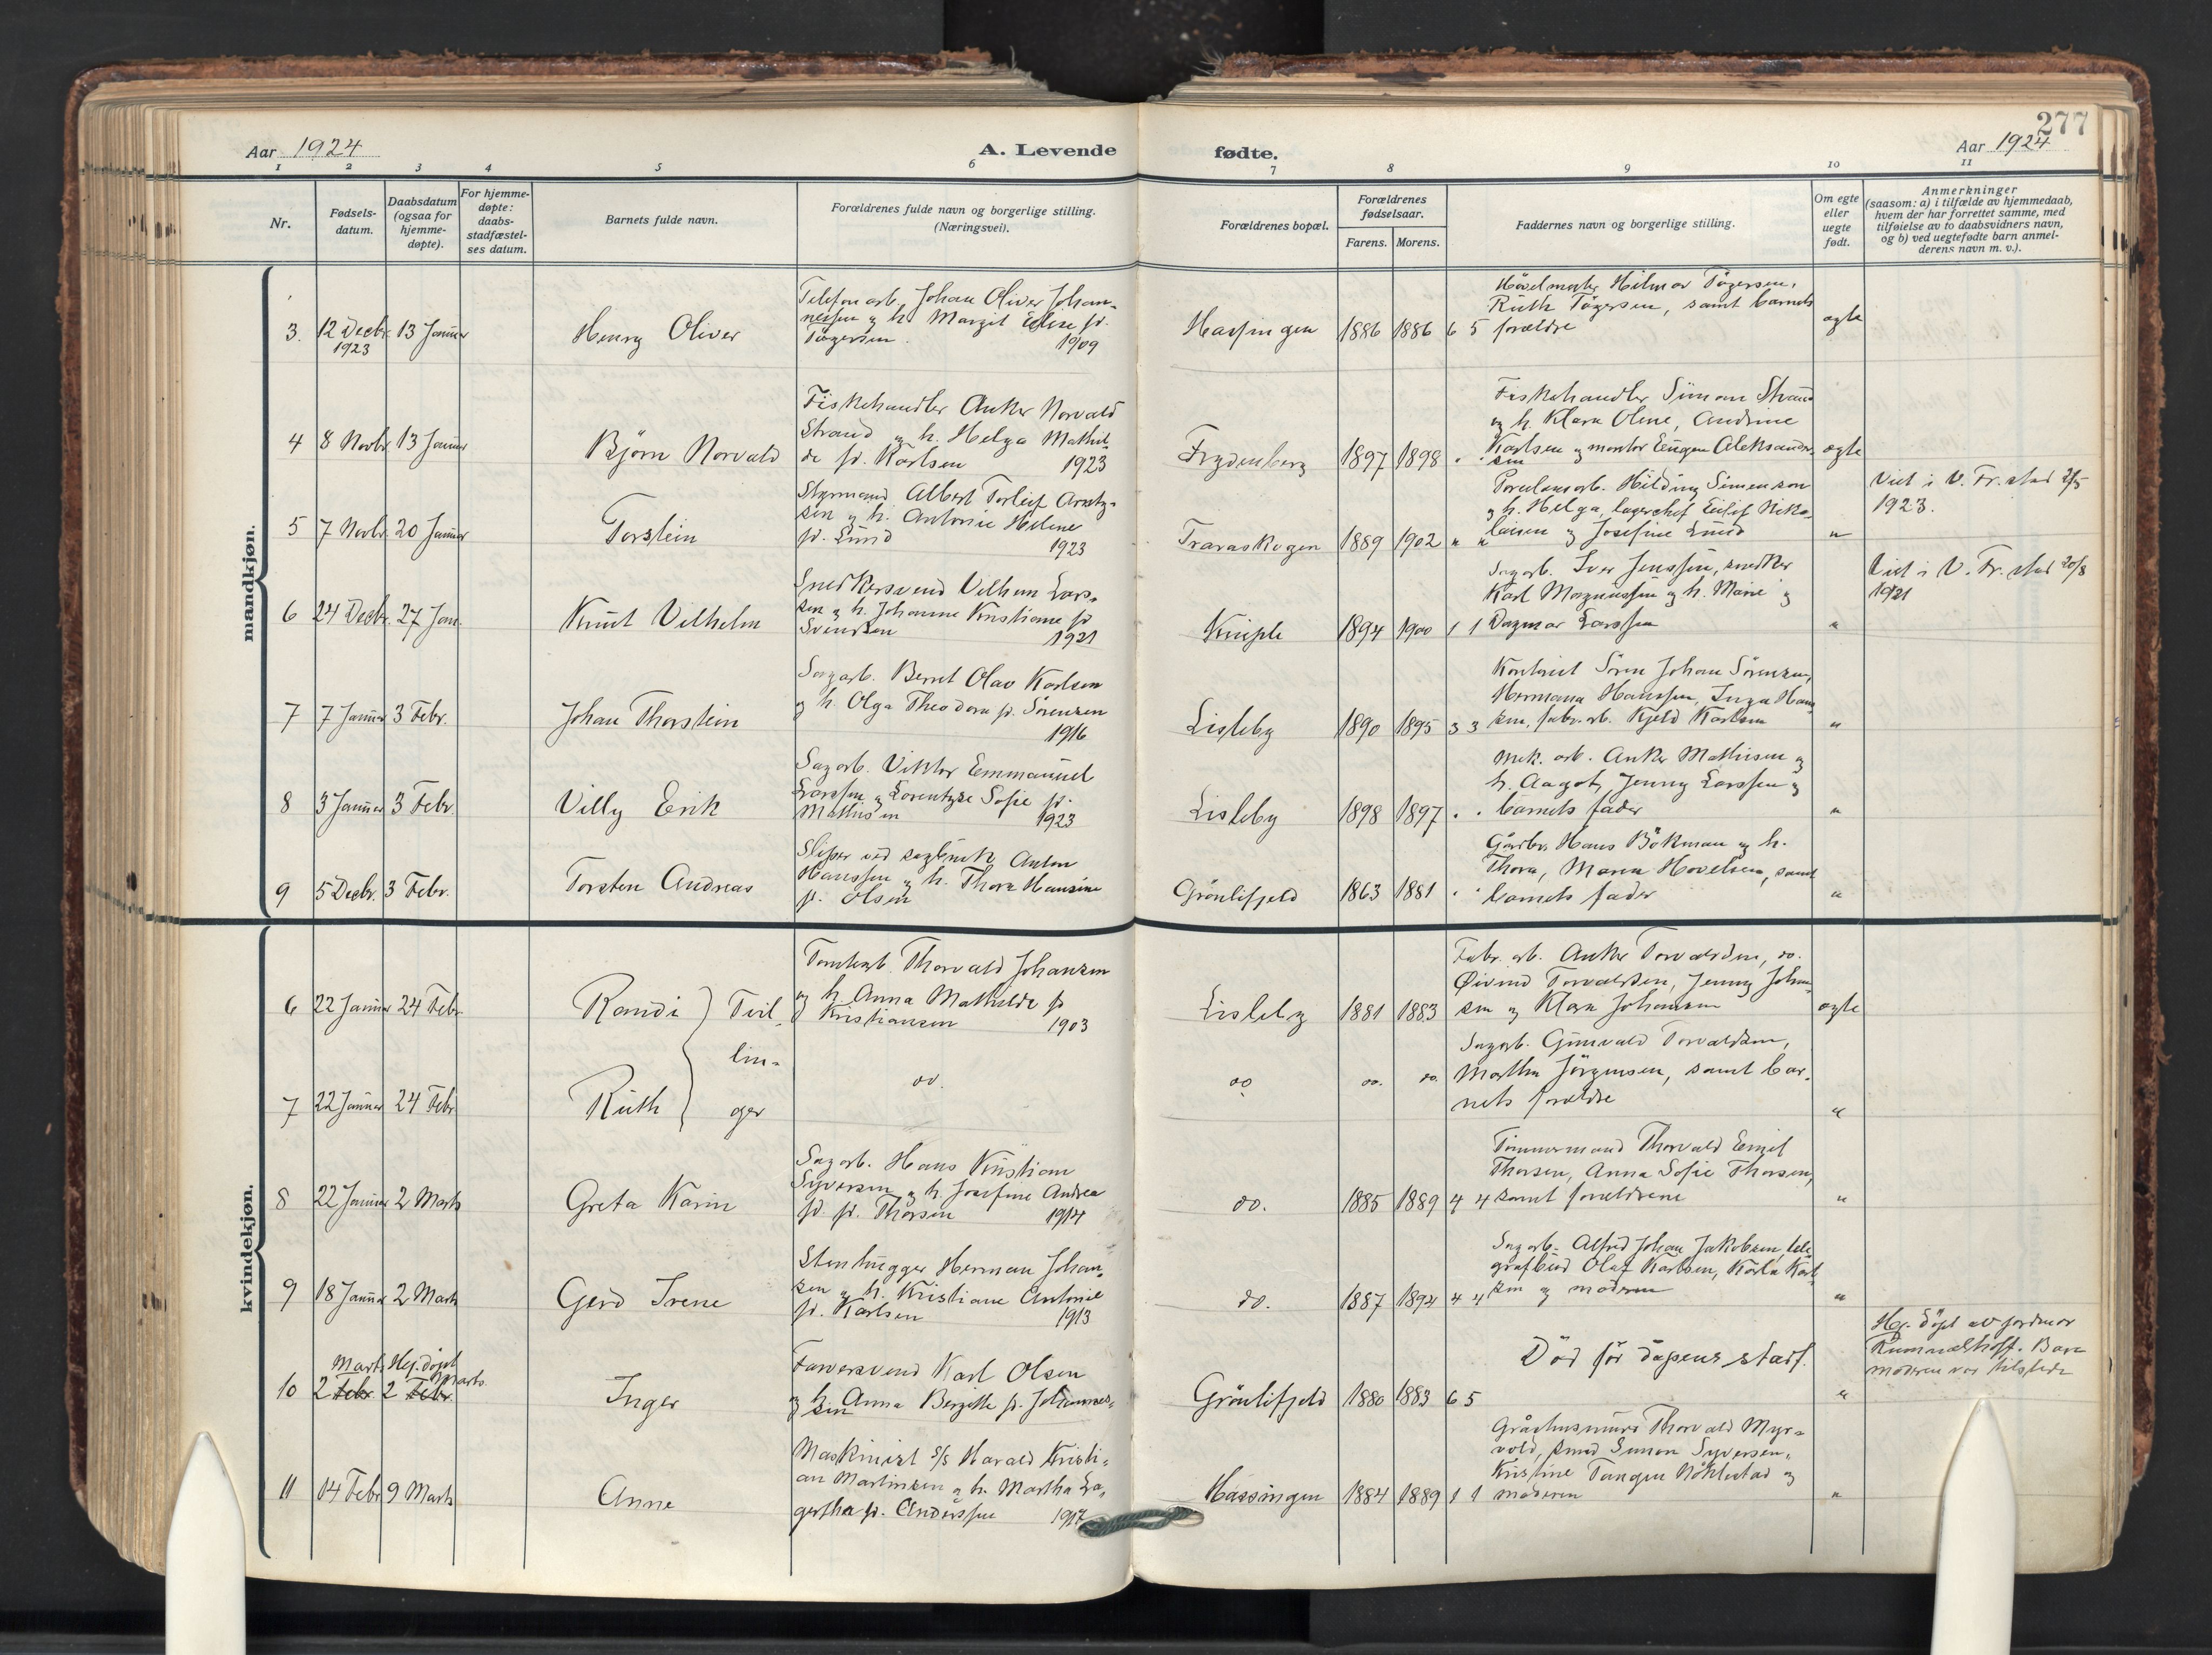 277
Aar 1924
A. Levende
fødte.
Aar 1924
1 2 3 4 5 6 7 8 9 10 11
Nr.
Fødsels-
datum.
Daabsdatum
(ogsaa for
hjemme-
døpte).
For hjemme-
døpte:
daabs-
stadfæstel-
ses datum.
Barnets fulde navn.
Forældrenes fulde navn og borgerlige stilling.
(Næringsvei).
Forældrenes bopæl.
Forældrenes
fødselsaar.
Farens. Morens.
Faddernes navn og borgerlige stilling.
Om egte
eller
uegte
født.
Anmerkninger
(saasom: a) i tilfælde av hjemmedaab,
hvem der har forrettet samme, med
tilføielse av to daabsvidners navn,
og b) ved uegtefødte barn anmel-
derens navn m. v.).
mandkjøn.
3. 12 Decbr. 13 Januar
1923
Henry Oliver
Telefonarb. Johan Oliver Johan-
nessen og h. Margit Eline fd.
Tøgersen. 1909
Hassingen 1886 1886 6 5
Høvelmester Hilmar Tøgersen,
Ruth Tøgersen, samt barnets
forældre
egte
4 8 Novbr. 13 Januar
Bjørn Norvald
Fiskehandler Anker Norvald
Strand og h. Helga Mathil-
de fd. Karlsen 1923
Frydenberg 1897 1898 . .
Fiskehandler Simon Strand
og h. Klara Oline, Andrine
Karlsen og montør Eugen Aleksander-
sen
egte
5 7 Novbr. 20 Januar
Torstein
Styrmand Albert Torleif Arntz-
sen og h. Antonie Helene
fd. Lund 1923
Traraskogen 1889 1902 " "
Porcelænsarb. Hilding Simenson
og h. Helga, lagerchef Eilif Niko-
laisen og Josefine Lund
"
Viet i V. Fr.stad 2/5
1923.
6 24 Decbr. 27 Jan.
Knut Vilhelm
Snedkersvend Vilhem Lars-
sen og h. Johanne Kristiane fd
Svendsen 1921
Kniple 1894 1900 1 1
Sagarb. Iver Jenssen, snedker
Karl Magnussen og h. Marie og
Dagmar Larssen
"
Viet i V. Fr.stad 20/8
1921
7 7 Januar 3 Febr.
Johan Thorstein
Sagarb. Bernt Olav Karlsen
og h. Olga Theodora fd. Sørensen
1916
Lisleby 1890 1895 3 3
Kontorist Sørn Johan Sørensen,
Hermana Hanssen, Inga Han-
sen, fabr.arb. Kjeld Karlsen
"
8 3 Januar 3 Febr.
Villy Erik
Sagarb. Viktor Emmanuel
Larssen og Lorentzke Sofie fd.
Mathisen 1923
Lisleby 1898 1897 . .
Mek. arb. Anker Mathisen og
h. Aagot, Jenny Larssen og
barnets fader
"
9 5 Decbr. 3 Febr.
Torsten Andreas
Sliper ved sagbruk Anton
Hanssen og h. Thora Hansine
fd. Olsen
Grønlifjeld 1863 1881 . .
Gårdbr. Hans Bökman og h.
Thora, Maren Hovelsen, samt
barnets fader
"
kvindekjøn.
6 22 Januar 24 Febr.
Randi
Tvil-
lin-
ger
Tomtearb. Thorvald Johansen
og h. Anna Mathilde fd
Kristiansen 1903
Lisleby 1881 1883
Fabr. arb. Anker Torvaldsen, do.
Øivind Torvaldsen, Jenny Johan-
sen og Klara Johansen
egte
7 22 Januar 24 Febr.
Ruth
do.
do do. do.
Sagarb. Gunvald Torvaldsen,
Martha Jørgensen, samt bar-
nets forældre
"
8 22 Januar 2 Marts
Greta Karin
Sagarb. Hans Kristian
Syversen og h. Josefine Andrea
fd. fd. Thorsen 1914
do. 1885 1889 4 4
Tømmermand Thorvald Emil
Thorsen, Anna Sofie Thorsen,
samt forældrene
"
9 18 Januar 2 Marts
Gerd Irene
Stenhugger Herman Johan-
sen og h. Kristiane Antonie
fd. Karlsen 1913
do. 1887 1894 4 4
Sagarb. Alfred Johan Jakobsen, tele-
grafbud Olaf Karlsen, Karla Karl-
sen og moderen
"
10 Marts Hj. döpt
2 Febr. 2 Febr. Marts
Inger
Farversvend Karl Olsen
og h. Anna Bergitte fd. Johannes-
sen
Grønlifjeld 1880 1883 6 5
Död för däpens stadf.
"
Hj. döpt av jordmor
Rummelhoff. Barne-
moderen var tilstede
11 14 Febr. 9 Marts
Anne
Maskinist S/S Harald Kristi-
an Martinsen og h. Martha La-
gertha fd. Anderssen 1917
Hassingen 1884 1889 1 1
Thorvald Myr-
vold, smed Simon Syversen,
Kristine Tangen Nöklestad og
moderen
"